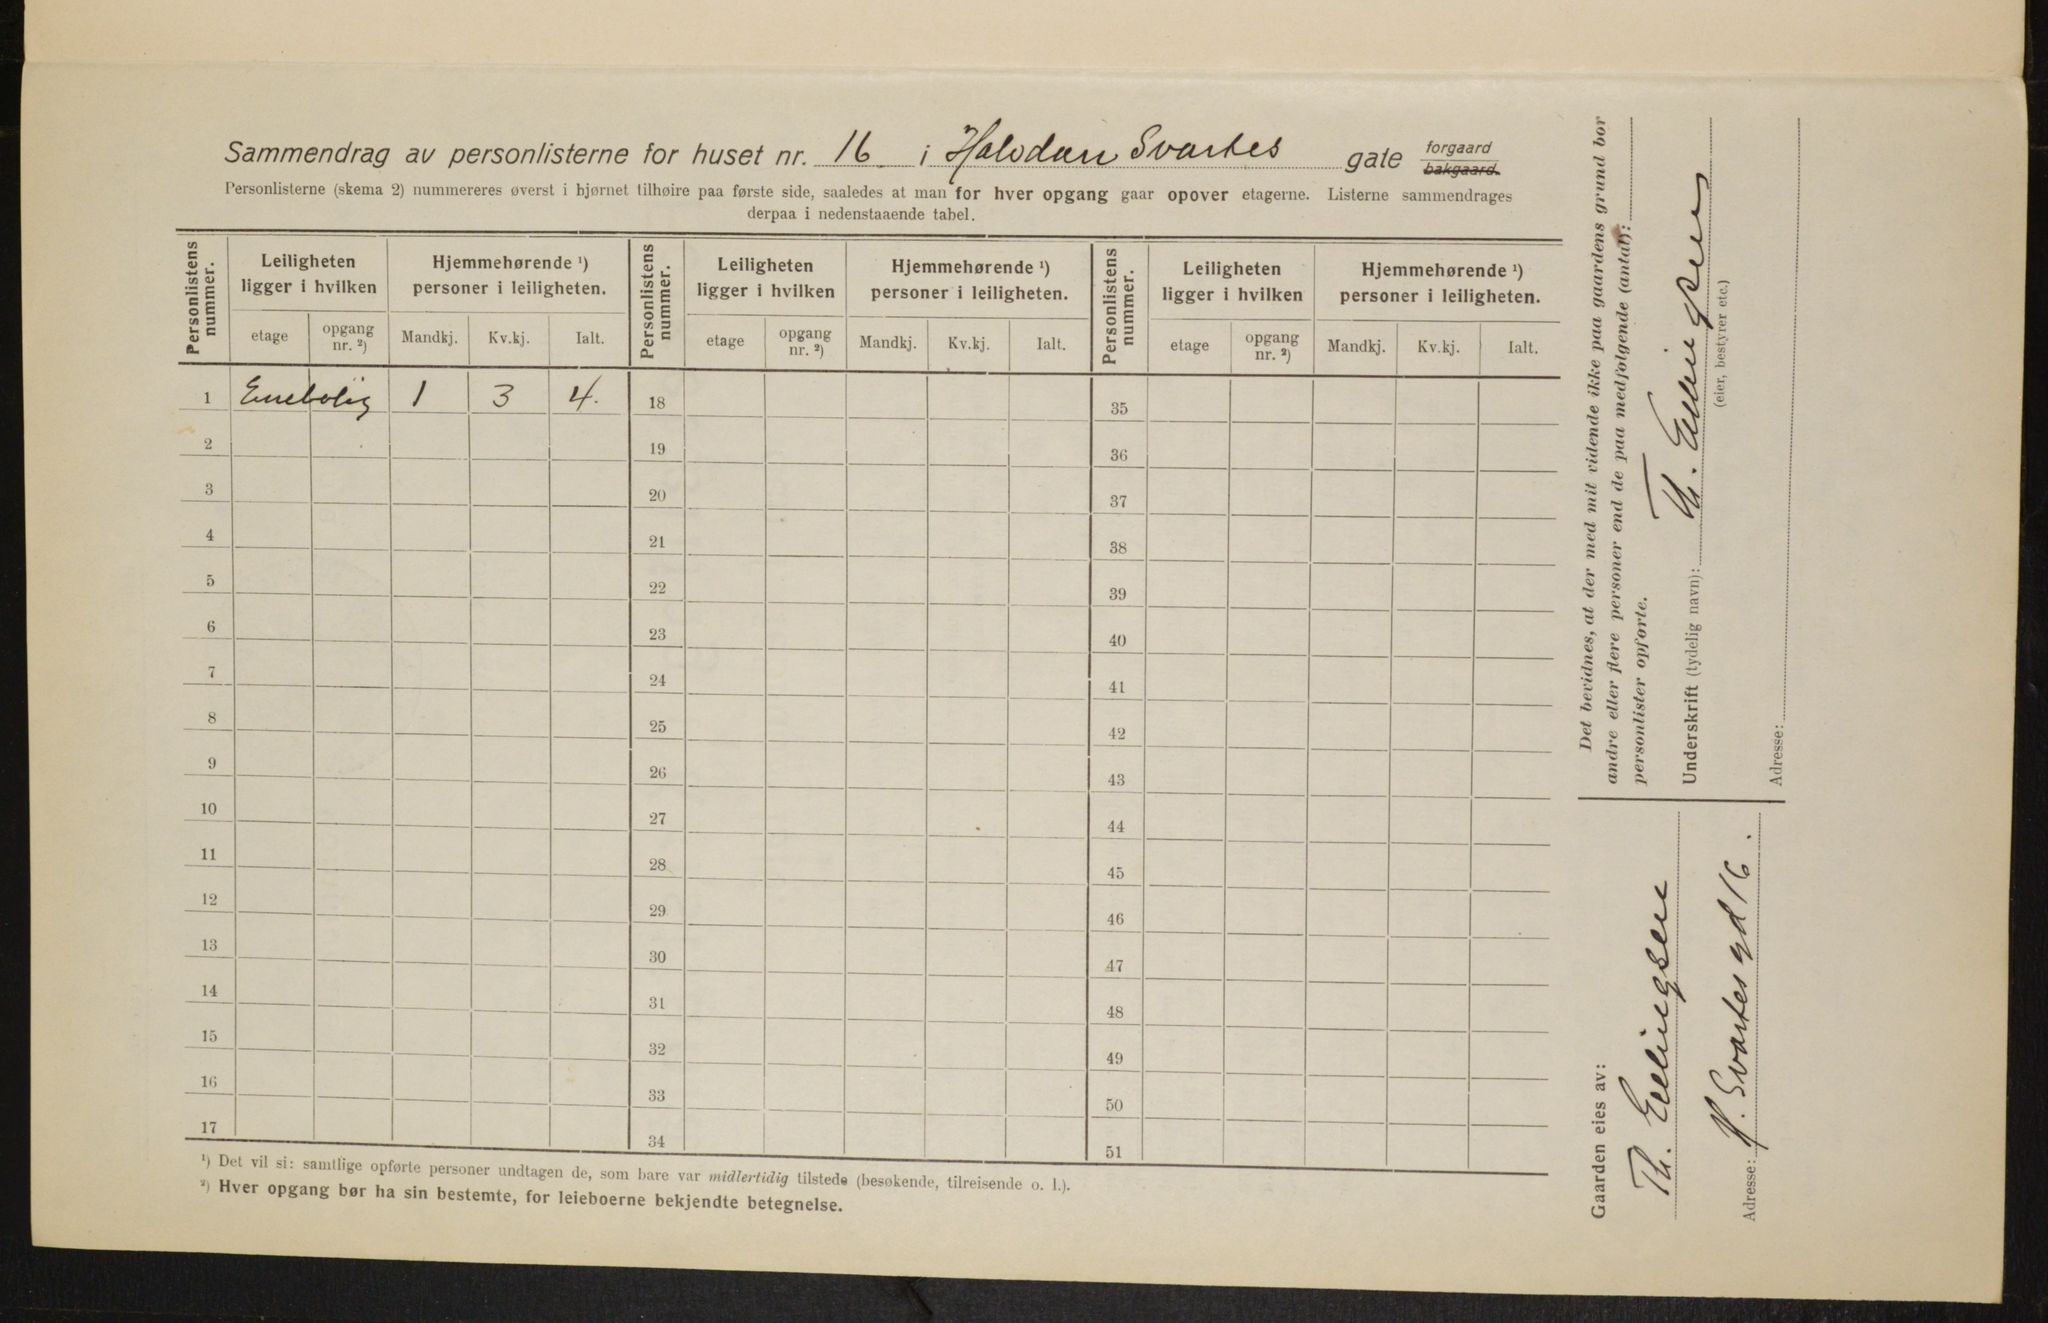 Sammendrag av personlisterne for huset nr. 16 i Halvdan Svartes gate forgaard bakgaard.
Personlisterne (skema 2) nummereres øverst i hjørnet tilhøire paa første side, saaledes at man for hver opgang gaar opover etagerne. Listerne sammendrages
derpaa i nedenstaaende tabel.
Personlistens nummer. Leiligheten ligger i hvilken Hjemmehørende ¹) personer i leiligheten. Personlistens nummer. Leiligheten ligger i hvilken Hjemmehørende ¹) personer i leiligheten. Personlistens nummer. Leiligheten ligger i hvilken Hjemmehørende ¹) personer i leiligheten.
etage opgang nr. ²) Mandkj. Kv.kj. Ialt. etage opgang nr. ²) Mandkj. Kv.kj. Ialt. etage opgang nr. ²) Mandkj. Kv.kj. Ialt.
1 Enebolig 1 3 4. 18 35
2 19 36
3 20 37
4 21 38
5 22 39
6 23 40
7 24 41
8 25 42
9 26 43
10 27 44
11 28 45
12 29 46
13 30 47
14 31 48
15 32 49
16 33 50
17 34 51
¹) Det vil si: samtlige opførte personer undtagen de, som bare var midlertidig tilstede (besøkende, tilreisende o. l.).
²) Hver opgang bør ha sin bestemte, for leieboerne bekjendte betegnelse.
Gaarden eies av:
Th. Ellingsen
Adresse: H. Svartes gd 16.
Det bevidnes, at der med mit vidende ikke paa gaardens grund bor
andre eller flere personer end de paa medfølgende (antal):
personlister opførte.
Underskrift (tydelig navn): Th. Ellingsen
(eier, bestyrer etc.)
Adresse: